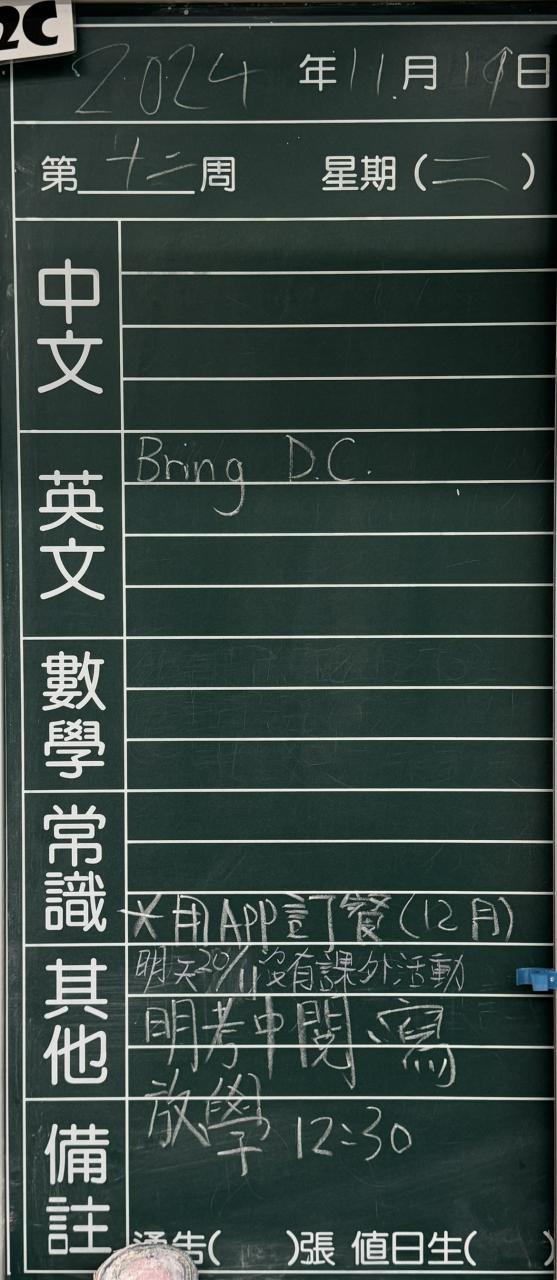 2C
2024 年 11 月 19 日
第 十二 周 星期 (二)
中文
英文
Bring D.C.
數學
常識
*用APP訂餐(12月)
其他
明天20/11沒有課外活動
明考中閱、寫
放學 12:30
備註
通告( )張 值日生( )